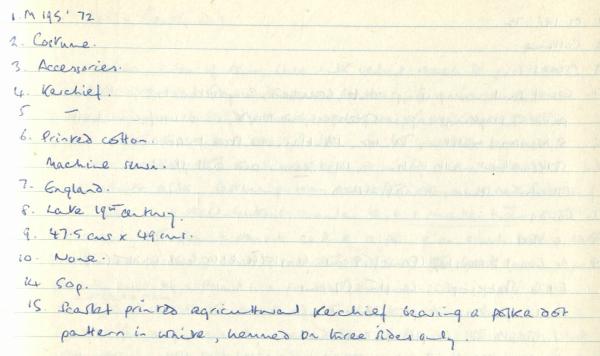 1. M 195' 72
2. Costume.
3. Accessories.
4. Kerchief.
5 —
6. Printed cotton.
Machine sewn.
7. England.
8. Late 19th century.
9. 47.5 cms x 49 cms.
10. None.
14 50p.
15. Scarlet printed agricultural kerchief bearing a polka dot
pattern in white, hemmed on three sides only.